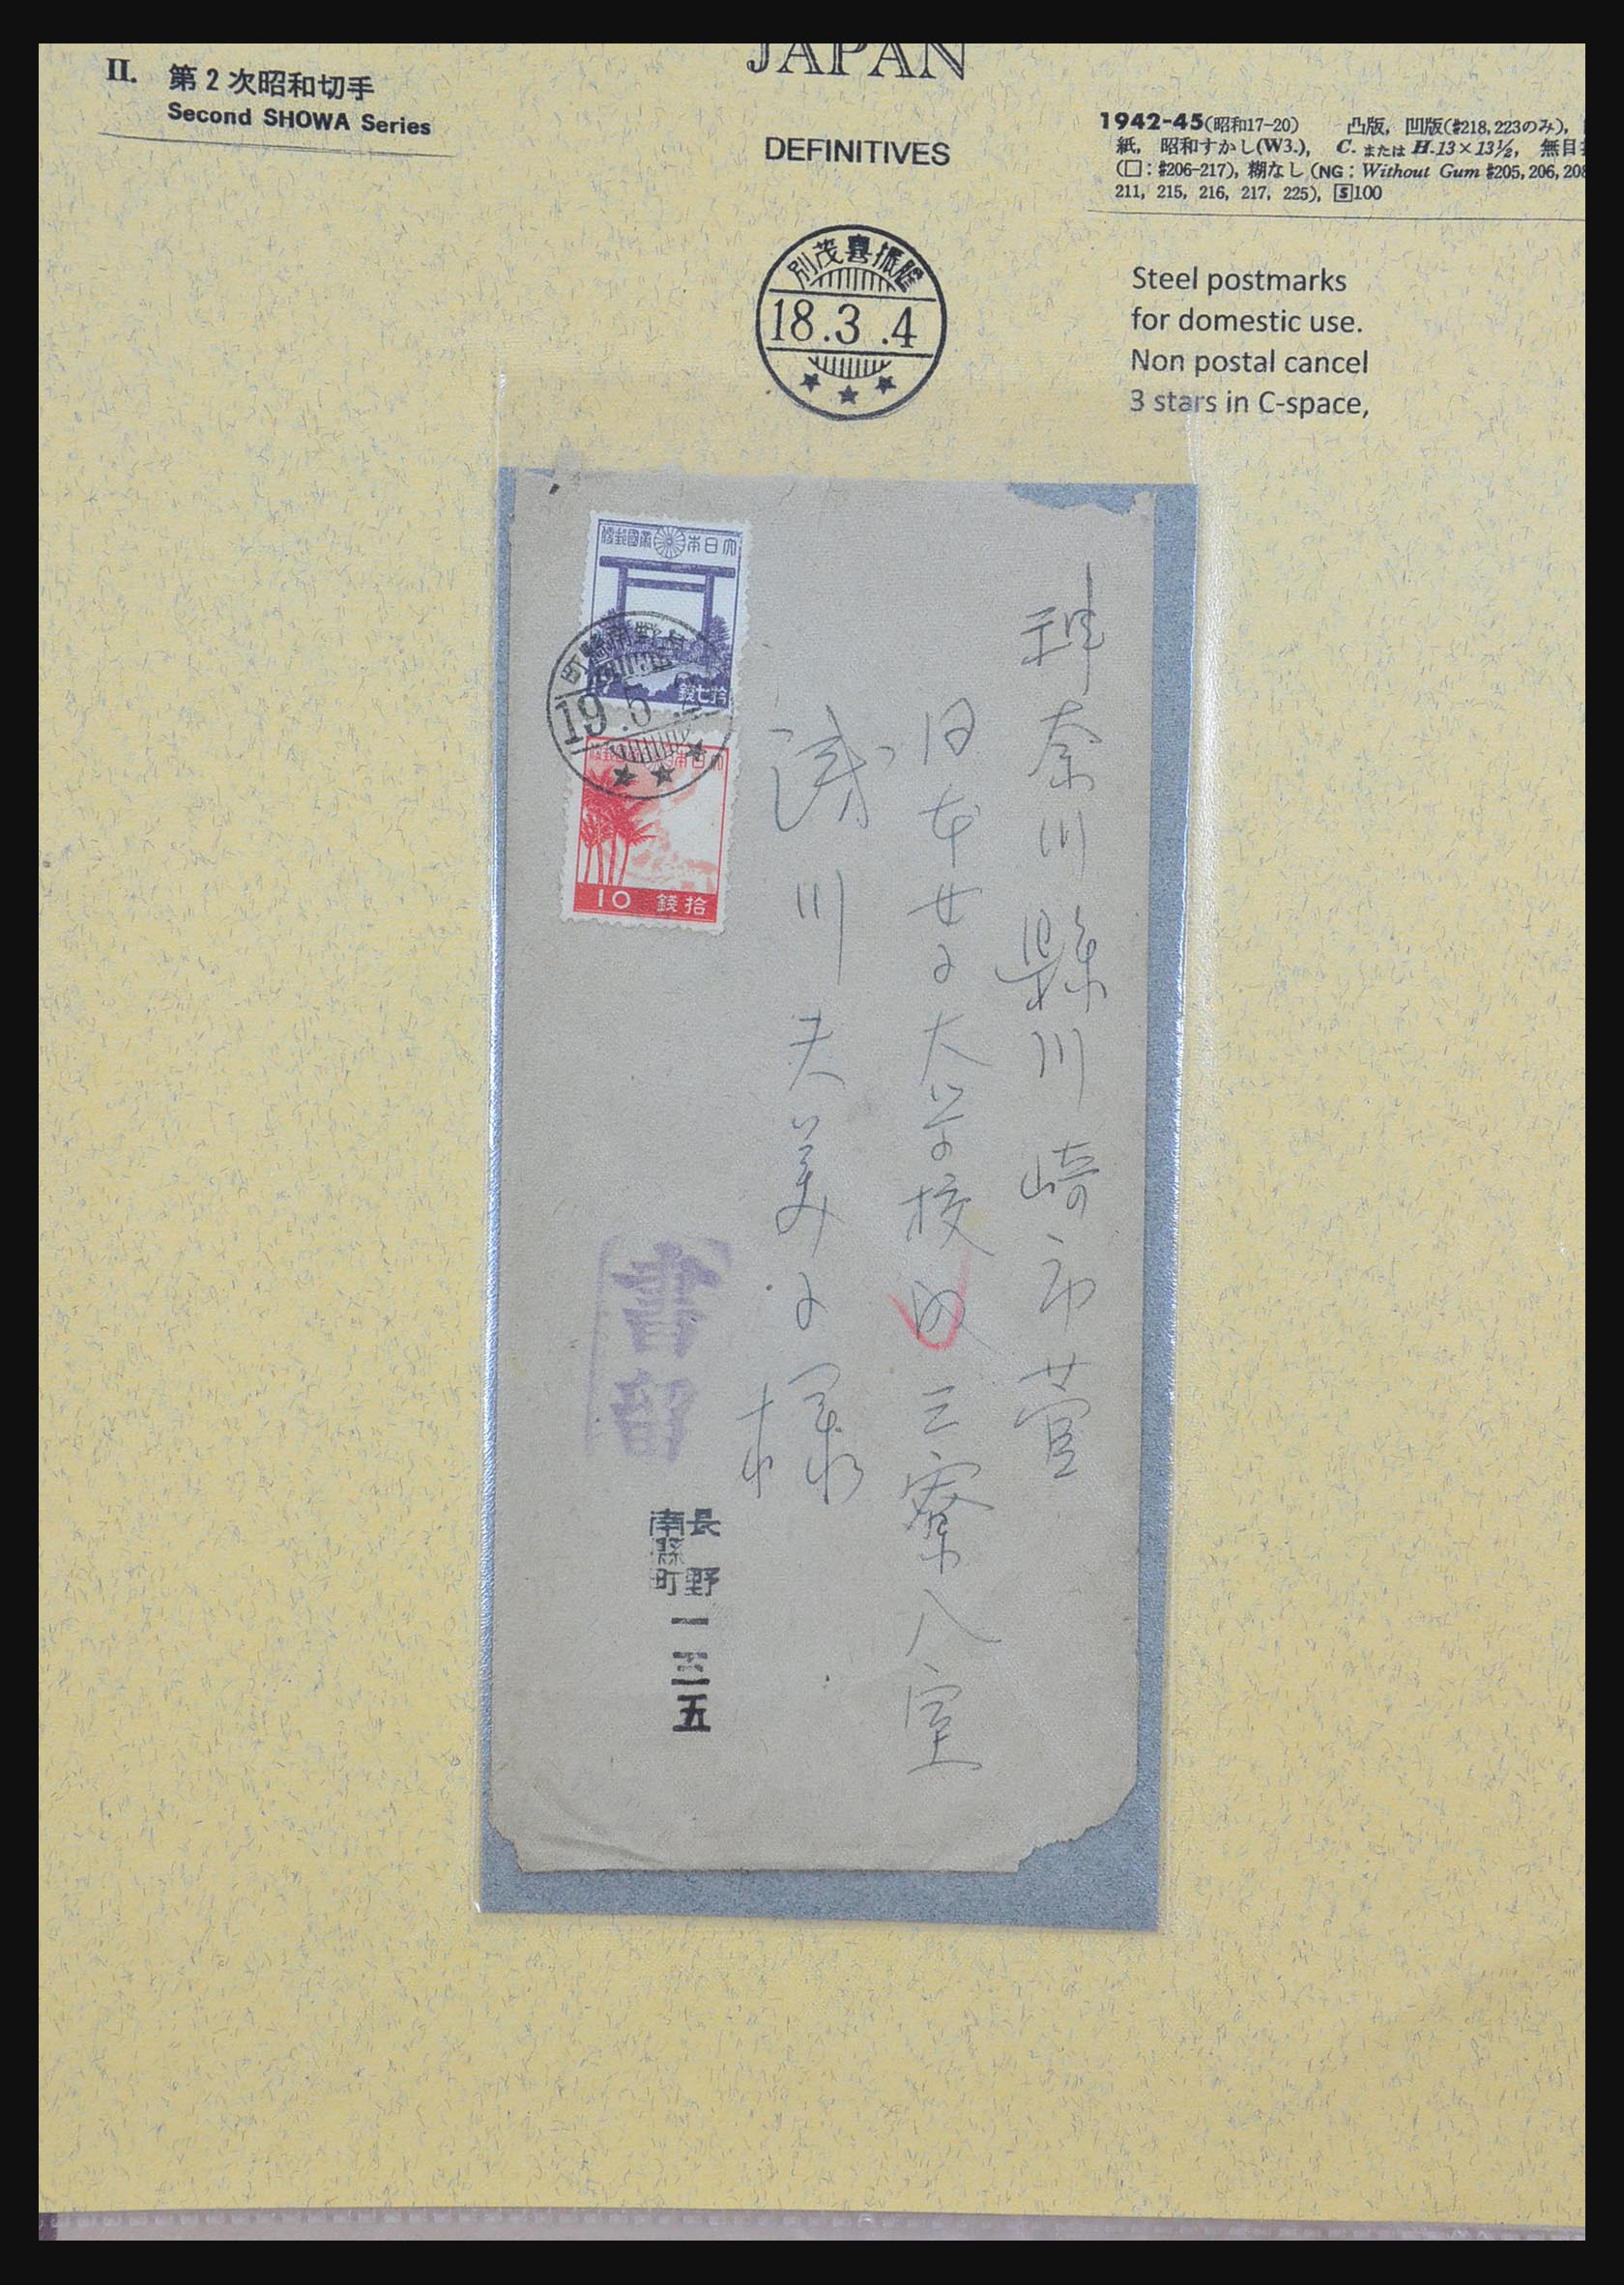 JAPAN
II. 第2次昭和切手
Second SHOWA Series
DEFINITIVES
1942-45(昭和17-20) 凸版, 凹版(#218, 223のみ),
紙, 昭和すかし(W3.), C. または H.13×13½, 無目
(□: #206-217), 糊なし (NG: Without Gum #205, 206, 208
211, 215, 216, 217, 225), S100
別茂喜振陸
18.3.4
Steel postmarks
for domestic use.
Non postal cancel
3 stars in C-space,
便郵國帝本日大
錢七拾
長野南縣町
19.5
便郵國帝本日大
10 錢拾
神奈川縣川崎市菅
日本女子大学校
三寮八室
川夫美子様
書留
長野
南縣町
一三五